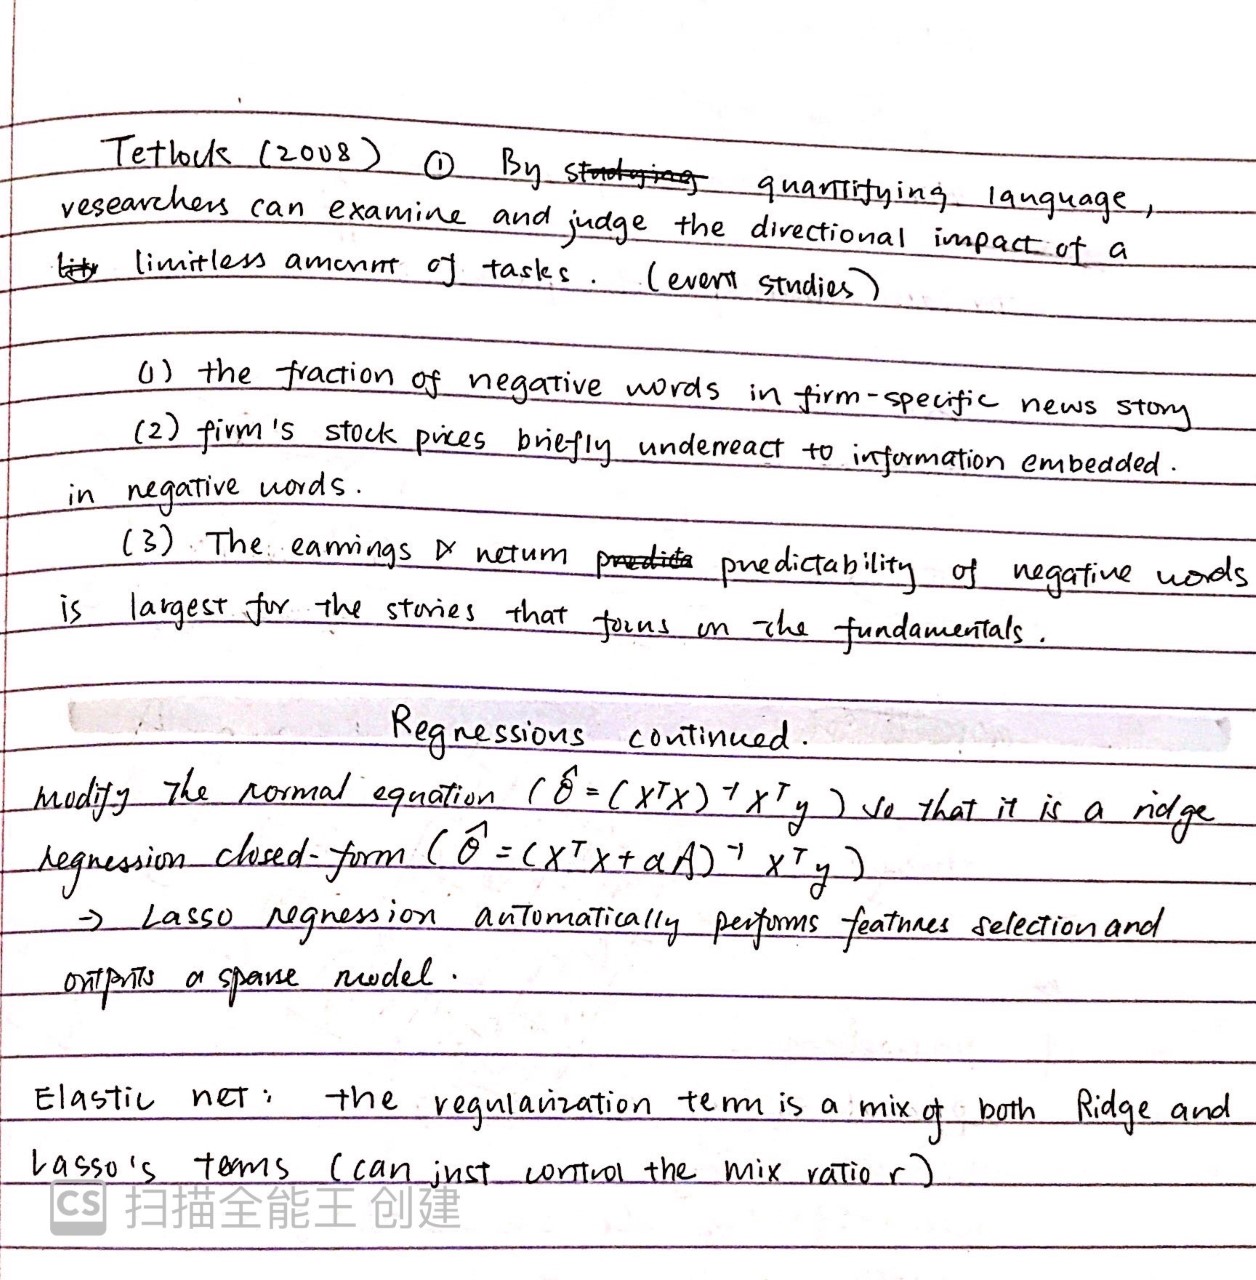 Tetlock (2008) ① By studying quantifying language,
researchers can examine and judge the directional impact of a
lity limitless amount of tasks. (event studies)
(1) the fraction of negative words in firm-specific news story
(2) firm's stock prices briefly underreact to information embedded.
in negative words.
(3) The earnings & return predicta predictability of negative words
is largest for the stories that focus on the fundamentals.
Regressions continued.
Modify the normal equation (θ̂ = (XᵀX)⁻¹Xᵀy) so that it is a ridge
regression closed-form (θ̂ = (XᵀX + αA)⁻¹ Xᵀy)
→ Lasso regression automatically performs features selection and
outputs a sparse model.
Elastic net: the regularization term is a mix of both Ridge and
Lasso's terms (can just control the mix ratio r)
CS 扫描全能王 创建